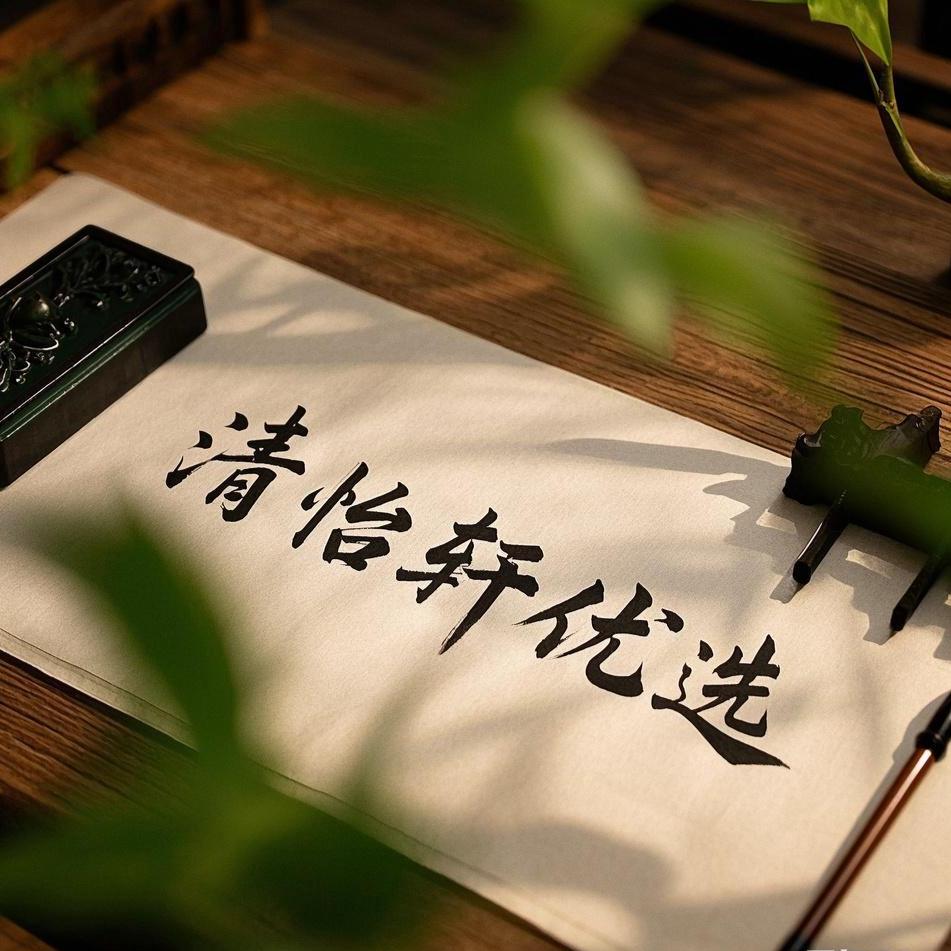 清怡轩优选